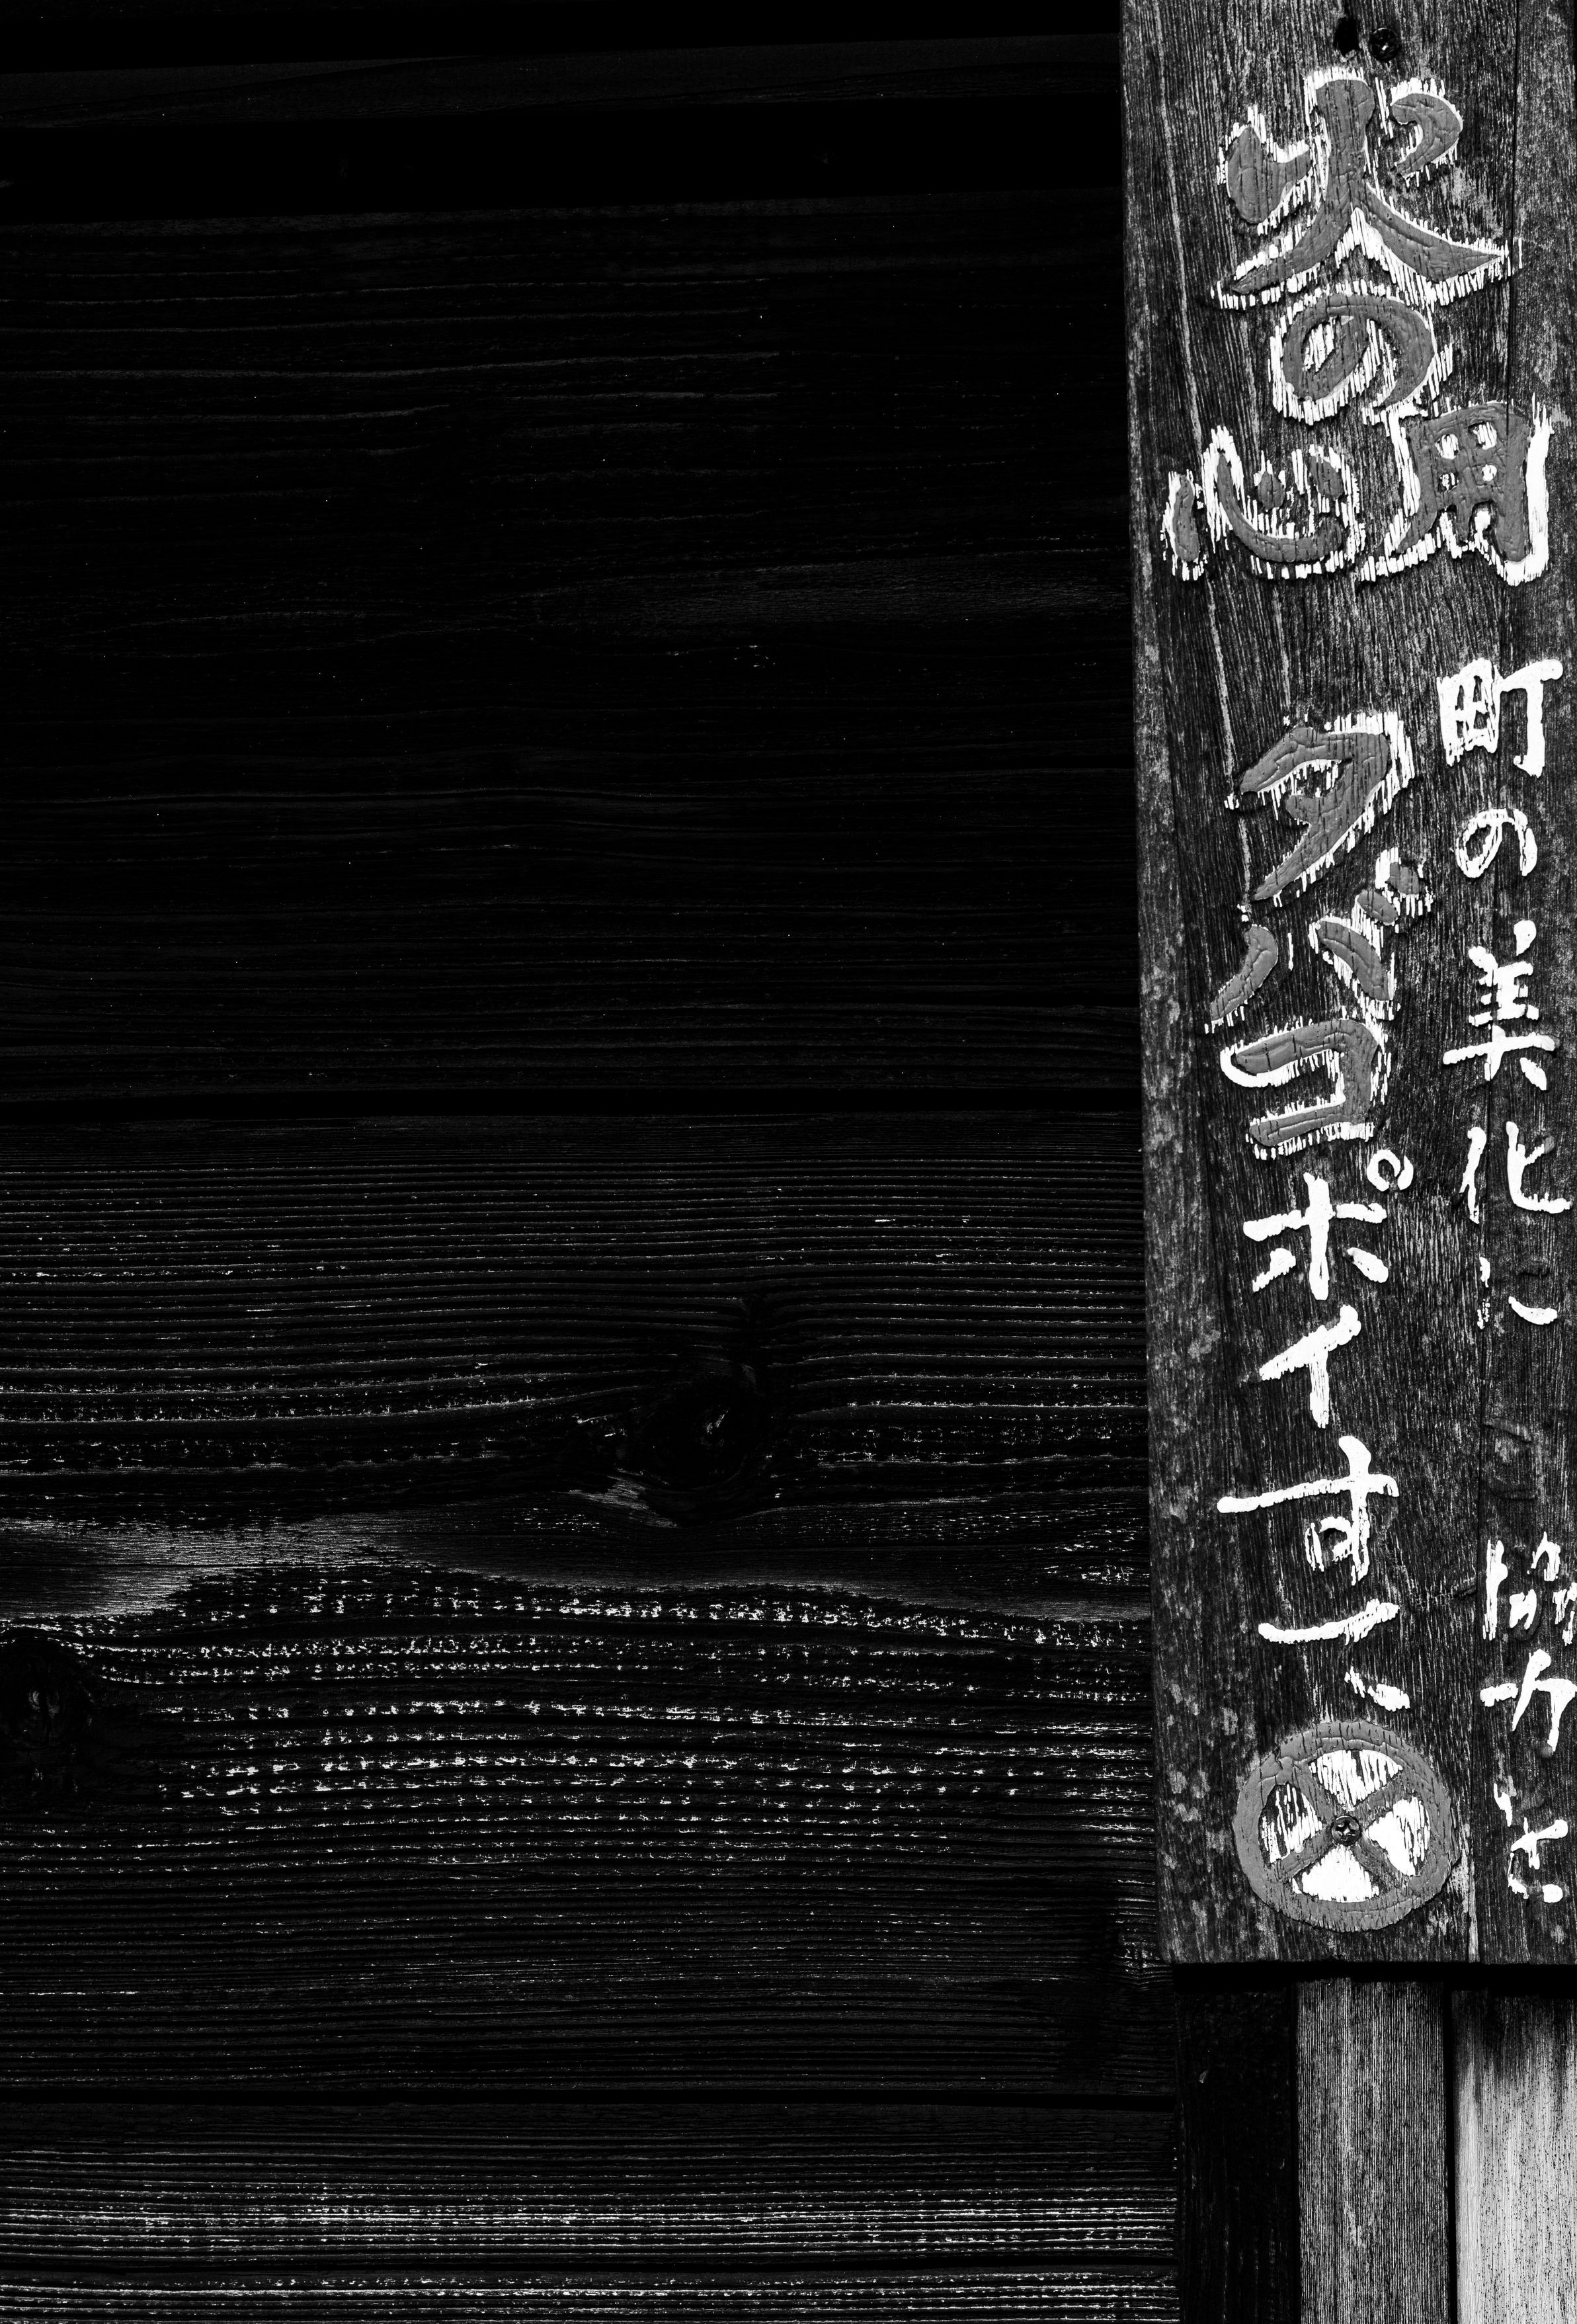 火の用心
町の美化に 協力を
タバコポイすて